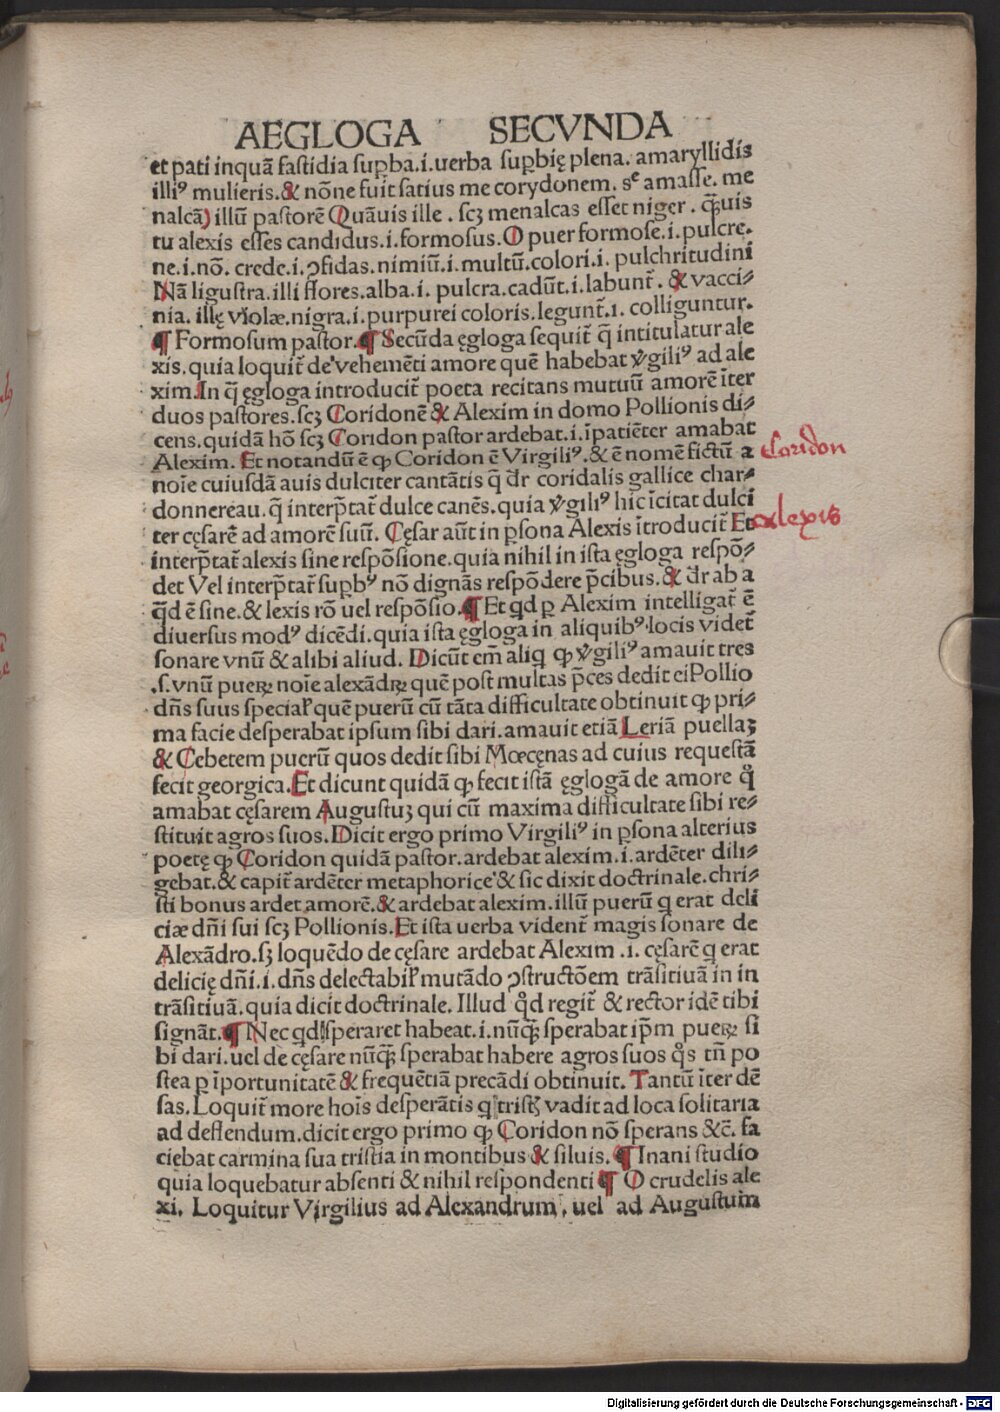 AEGLOGA SECVNDA
et pati inquā fastidia suꝑba.i.uerba suꝑbię plena. amaryllidis
illiꝰ mulieris.& nōne fuit satius me corydonem. sᵉ amasse. me
nalcā) illū pastorē Quāuis ille . scꝫ menalcas esset niger . q̄uis
tu alexis esses candidus.i.formosus.O puer formose.i.pulcre.
ne.i.nō. crede.i.ꝯfidas.nimiū.i.multū.colori.i. pulchritudini
Nā ligustra.illi flores.alba.i. pulcra.cadūt.i.labunt̄. & vacci⸗
nia. illę violæ.nigra.i.purpurei coloris.legunt̄.i. colliguntur.
¶ Formosum pastor.¶ Secūda ęgloga sequit̄ q̄ intitulatur ale
xis.quia loquit̄ de vehemēti amore quē habebat v̄giliꝰ ad ale
xim.In q̄ ęgloga introducit̄ poeta recitans mutuū amorē īter
duos pastores.scꝫ Coridonē & Alexim in domo Pollionis di⸗
cens.quidā hō scꝫ Coridon pastor ardebat.i.īpatiēter amabat
Alexim. Et notandū ē ꝙ Coridon ē Virgiliꝰ.& ē nomē fictū a
noīe cuiusdā auis dulciter cantātis q̄ dr̄ coridalis gallice char⸗
donnereau.q̄ interp̄tat̄ dulce canēs.quia v̄giliꝰ hic īcitat dulci
ter cęsarē ad amorē suū. Cęsar aūt in ꝑsona Alexis ītroducit̄ Et
interp̄tat̄ alexis sine respōsione.quia nihil in ista ęgloga respō⸗
det Vel interp̄tat̄ suꝑbꝰ nō dignās respōdere p̄cibus.& dr̄ ab a
q̄d ē sine.& lexis rō uel respōsio.¶ Et qd ꝑ Alexim intelligat̄ ē
diuersus modꝰ dicēdi.quia ista ęgloga in aliquibꝰ locis videt̄
sonare vnū & alibi aliud. Dicūt em̄ aliq ꝙ v̄giliꝰ amauit tres
.s.vnū pueꝝ noīe alexādꝝ quē post multas p̄ces dedit ei Pollio
dn̄s suus speciaƚ quē puerū cū tāta difficultate obtinuit ꝙ pri⸗
ma facie desperabat ipsum sibi dari.amauit etiā Leriā puellaꝫ
& Cebetem puerū quos dedit sibi Mœcęnas ad cuius requestā
fecit georgica.Et dicunt quidā ꝙ fecit istā ęglogā de amore q̊
amabat cęsarem Augustuꝫ qui cū maxima difficultate sibi re⸗
stituit agros suos.Dicit ergo primo Virgiliꝰ in ꝑsona alterius
poetę ꝙ Coridon quidā pastor.ardebat alexim.i.ardēter dili⸗
gebat.& capit̄ ardēter metaphorice & sic dixit doctrinale.chri⸗
sti bonus ardet amorē.& ardebat alexim.illū puerū q erat deli
ciæ dn̄i sui scꝫ Pollionis.Et ista uerba vident̄ magis sonare de
Alexādro.sꝫ loquēdo de cęsare ardebat Alexim .i. cęsarē q erat
delicię dn̄i.i.dn̄s delectabiƚ mutādo ꝯstructōem trāsitiuā in in
trāsitiuā.quia dicit doctrinale. Illud q̊d regit̄ & rector idē tibi
signāt.¶ Nec qd speraret habeat.i.nūq̄ꝫ sperabat ip̄m pueꝝ si
bi dari.uel de cęsare nūq̄ꝫ sperabat habere agros suos q̊s tn̄ po
stea ꝑ īportunitatē & frequētiā precādi obtinuit. Tantū īter dē
sas.Loquit̄ more hoīs desperātis q tristꝫ vadit ad loca solitaria
ad deflendum.dicit ergo primo ꝙ Coridon nō sperans &c̄. fa
ciebat carmina sua tristia in montibus & siluis.¶ Inani studio
quia loquebatur absenti & nihil respondenti ¶ O crudelis ale
xi. Loquitur Virgilius ad Alexandrum, uel ad Augustum
Coridon
alexis
Digitalisierung gefördert durch die Deutsche Forschungsgemeinschaft - DFG